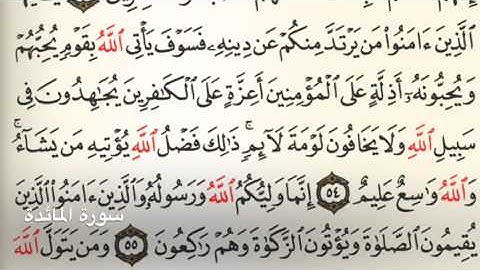 ٱلَّذِينَ ءَامَنُوا۟ مَن يَرْتَدَّ مِنكُمْ عَن دِينِهِۦ فَسَوْفَ يَأْتِى ٱللَّهُ بِقَوْمٍ يُحِبُّهُمْ
وَيُحِبُّونَهُۥٓ أَذِلَّةٍ عَلَى ٱلْمُؤْمِنِينَ أَعِزَّةٍ عَلَى ٱلْكَٰفِرِينَ يُجَٰهِدُونَ فِى
سَبِيلِ ٱللَّهِ وَلَا يَخَافُونَ لَوْمَةَ لَآئِمٍ ۚ ذَٰلِكَ فَضْلُ ٱللَّهِ يُؤْتِيهِ مَن يَشَآءُ ۚ
وَٱللَّهُ وَٰسِعٌ عَلِيمٌ ٥٤ إِنَّمَا وَلِيُّكُمُ ٱللَّهُ وَرَسُولُهُۥ وَٱلَّذِينَ ءَامَنُوا۟ ٱلَّذِينَ
سورة المائدة
يُقِيمُونَ ٱلصَّلَوٰةَ وَيُؤْتُونَ ٱلزَّكَوٰةَ وَهُمْ رَٰكِعُونَ ٥٥ وَمَن يَتَوَلَّ ٱللَّهَ